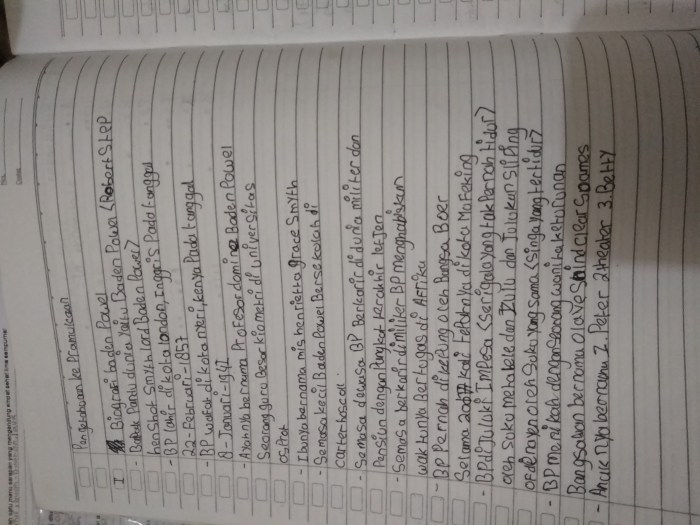 Pengetahuan ke Pramukaan
I Biografi baden Powel
- Bapak Pandu dunia Yaitu Baden Powel (Robert Step
henshot Smyth lord Baden Powel)
- BP lahir di kota london, Inggris Pada tanggal
22-Februari-1857
- BP wafat di kota nyeri, kenya Pada tanggal
8-Januari-1941
- Ayahnya bernama Profesor domine Baden Powel
Seorang guru besar kiometri di universitas
osfrot
- Ibunya bernama mis henrietta grace Smyth
- Semasa kecil Baden Powel Bersekolah di
carterhoscoll
- Semasa dewasa BP Berkarir di dunia militer dan
Pensiun dengan Pangkat terakhir letjen
- Semasa berkarir di militer BP menghabiskan
waktunya Bertugas di Afrika
- BP Pernah di kepung oleh Bangsa Boer
Selama 207 kali Tepatnya di kota Mafeking
- BP di Juluki Impesa (Serigala yang tak Pernah tidur)
oleh suku metabele dan zulu dan Julukun Sliping
oleh suku yang sama (singa yang tertidur)
- BP menikah dengan seorang wanita keturunan
Bangsawan bernama olave St clear Soames
- Anak nya bernama 1. Peter 2 theater 3. Betty